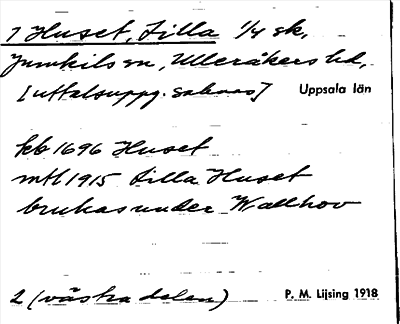 1 Huset, Lilla 1/4 sk,
Jumkils sn, Ulleråkers hd,
[uttalsuppg. saknas] Uppsala län
kb 1696 Huset
mtl 1915 Lilla Huset
brukas under Wallhov
2 (västra delen) P. M. Lijsing 1918